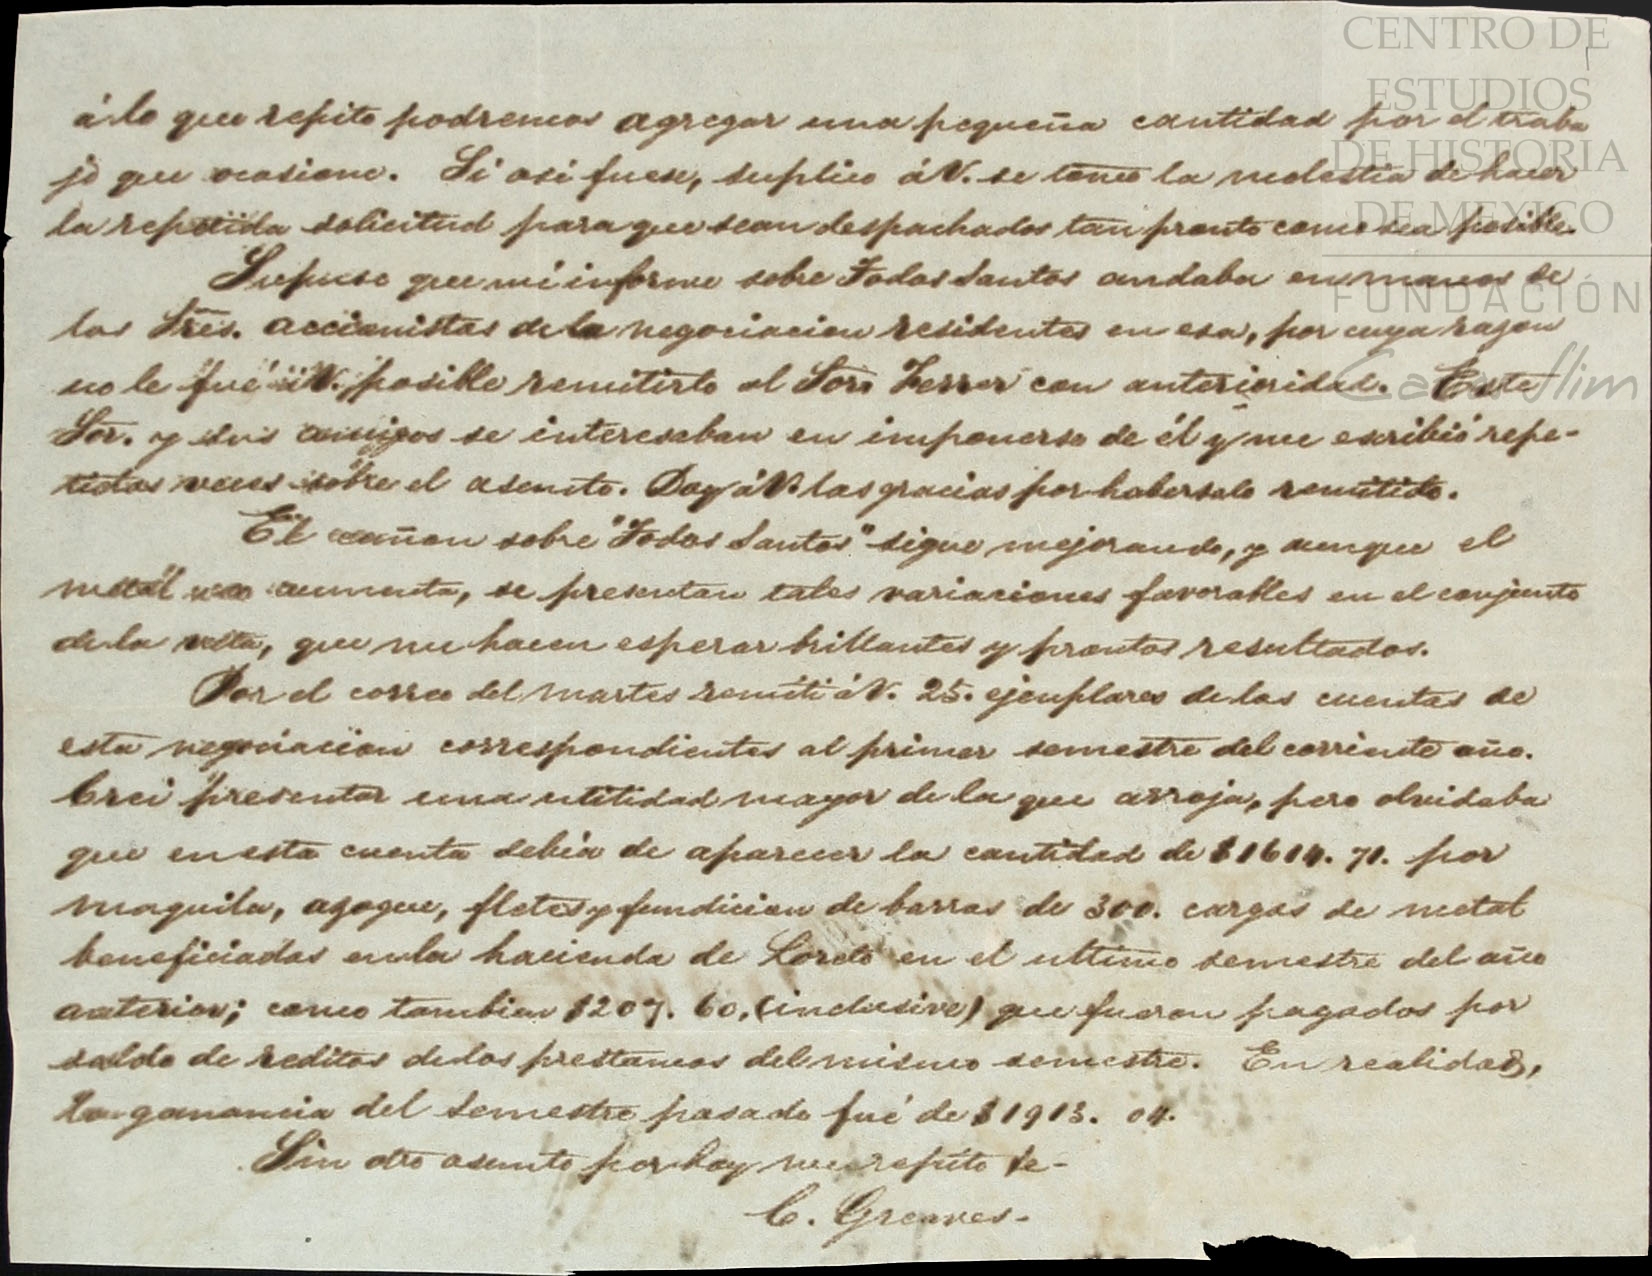 CENTRO DE
ESTUDIOS
DE HISTORIA
DE MEXICO
FUNDACIÓN
Carlos Slim
á lo que repito podremos agregar una pequeña cantidad por el traba
jo que ocasione. Si asi fuese, suplico á V. se tome la molestia de hacer
la repetida solicitud para que sean despachados tan pronto como sea posible.
Supuse que mi informe sobre Todos Santos andaba en manos de
los Sres. accionistas de la negociacion residentes en esa, por cuya razon
no le fué á V. posible remitirlo al Sor. Ferrer con anterioridad. Este
Sor. y sus amigos se interesaban en imponerse de él y me escribió repe-
tidas veces sobre el asunto. Doy á V. las gracias por haberselo remitido.
El cañon sobre "Todos Santos" sigue mejorando, y aunque el
metal no aumenta, se presentan tales variaciones favorables en el conjunto
de la veta, que me hacen esperar brillantes y prontos resultados.
Por el correo del martes remití á V. 25. ejemplares de las cuentas de
esta negociacion correspondientes al primer semestre del corriente año.
Crei presentar una utilidad mayor de la que arroja, pero olvidaba
que en esta cuenta debia de aparecer la cantidad de $1614. 71. por
maquila, azogue, fletes y fundicion de barras de 300. cargas de metal
beneficiadas en la hacienda de Loreto en el ultimo semestre del año
anterior; como tambien $207. 60, (inclusive) que fueron pagados por
saldo de reditos de los prestamos del mismo semestre. En realidad,
la ganancia del semestre pasado fué de $1913. 04.
Sin otro asunto por hoy me repito se-
C. Greaves-